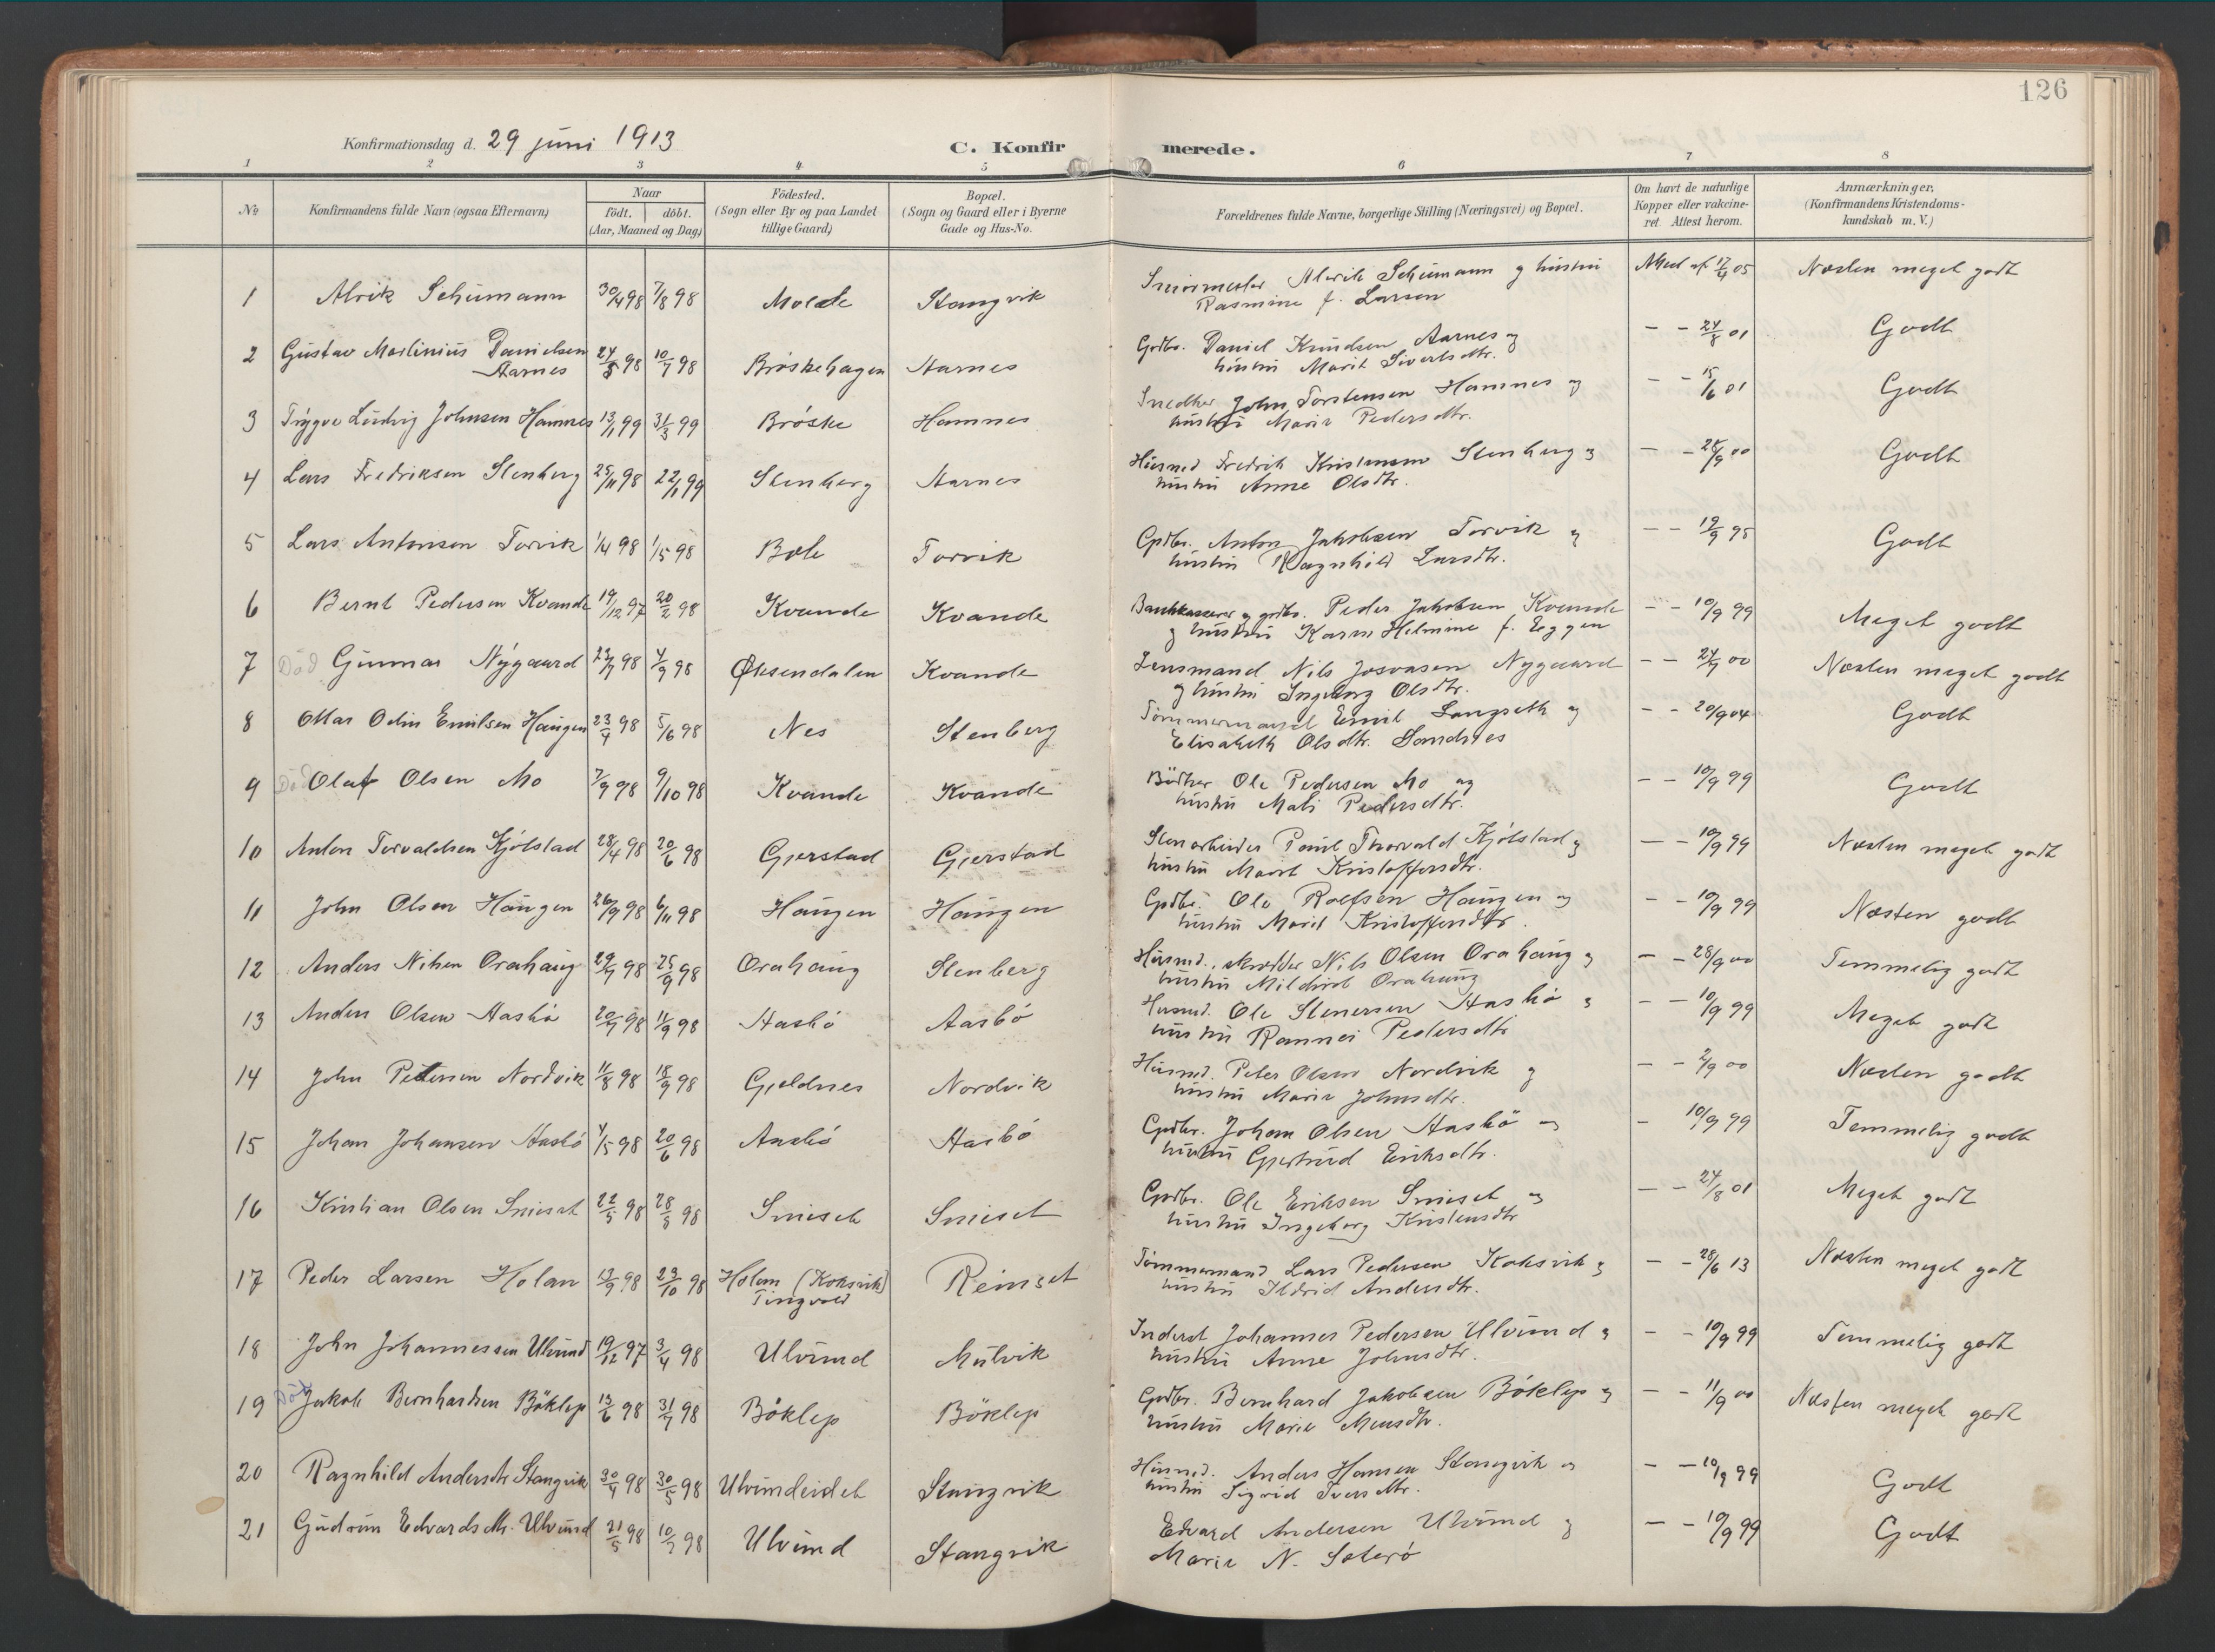 126
Konfirmationsdag d. 29 juni 1913
C. Konfir merede.
1 2 3 4 5 6 7 8
No
Konfirmandens fulde Navn (ogsaa Efternavn)
Naar
født. døbt.
(Aar, Maaned og Dag)
Fødested.
(Sogn eller By og paa Landet
tillige Gaard)
Bopæl.
(Sogn og Gaard eller i Byerne
Gade og Hus-No.
Forældrenes fulde Navne, borgerlige Stilling (Næringsvei) og Bopæl.
Om havt de naturlige
Kopper eller vakcine-
ret Attest herom.
Anmærkninger.
(Konfirmandens Kristendoms-
kundskab m. V.)
1 Alrik Schumann 30/4 98 7/8 98 Molde Stangvik Schumann g hustru Attest af 17/4 05 Næsten meget godt
Rasmine f. Larsen
2 Gustav Martinius Danielsen 24/5 98 10/7 98 Brøskehagen Aarnes Grdbr. Daniel Knudsen Aarnes og - - 24/8 01 Godt
Aarnes hustru Marit Sivertsdtr.
3 Trygve Ludvig Johnsen Hamnes 13/1 99 31/3 99 Brøske Hamnes Snedker John Torstensen Hamnes og - - 15/6 01 Godt
hustru Marie Pedersdtr.
4 Lars Fredriksen Stenberg 25/11 98 22/1 99 Stenberg Aarnes Husmd Fredrik Kristensen Stenberg og - - 28/9 00 Godt
hustru Anne Olsdtr.
5 Lars Antonsen Torvik 1/4 98 1/5 98 Bøle Torvik Grdbr. Anton Jakobsen Torvik og - - 19/9 98 Godt
hustru Ragnhild Larsdtr.
6 Bernt Pedersen Kvande 19/12 97 20/2 98 Kvande Kvande Bankkasserer og grdbr. Peder Jakobsen Kvande - - 10/9 99 Meget godt
g hustru Karen Helmine f. Eggen
7 Død Gunnar Nygaard 23/7 98 4/9 98 Øksendalen Kvande Lensmand Nils Josvasen Nygaard - - 24/9 00 Næsten meget godt
g hustru Ingeborg Olsdtr.
8 Ottar Odin Emilsen Haugen 23/4 98 5/6 98 Nes Stenberg Tømmermand Emil Langseth og - - 20/9 04 Godt
Elisabeth Olsdtr. Sandnes
9 Død Olaf Olsen Mo 7/9 98 9/10 98 Kvande Kvande Bødker Ole Pedersen Mo og - - 10/9 99 Godt
hustru Mali Pedersdtr.
10 Anton Torvaldsen Kjølstad 28/4 98 20/6 98 Gjerstad Gjerstad Stenarbeider Paul Thorvald Kjølstad og - - 10/9 99 Næsten meget godt
hustru Marit Kristoffersdtr.
11 John Olsen Haugen 26/9 98 6/11 98 Haugen Haugen Grdbr. Ole Rolfsen Haugen og - - 10/9 99 Næsten godt
hustru Marit Kristoffersdtr.
12 Anders Nilsen Orahaug 29/7 98 25/9 98 Orahaug Stenberg Husmd., skredder Nils Olsen Orahaug og - - 28/9 00 Temmelig godt
hustru Mildrid Orahaug
13 Anders Olsen Aasbø 20/7 98 11/9 98 Aasbø Aasbø Husmd. Ole Stenersen Aasbø og - - 10/9 99 Meget godt
hustru Rannei Pedersdtr
14 John Petersen Nordvik 11/8 98 18/9 98 Gjeldnes Nordvik Husmd. Peter Olsen Nordvik og - - 2/9 00 Næsten godt
hustru Marie Johnsdtr.
15 Johan Johansen Aasbø 4/5 98 20/6 98 Aasbø Aasbø Grdbr. Johan Olsen Aasbø og - 10/9 99 Temmelig godt
hustru Gjertrud Eriksdtr.
16 Kristian Olsen Sniset 22/5 98 28/8 98 Sniset Sniset Grdbr. Ole Eriksen Sniset og - - 24/8 01 Meget godt
hustru Ingeborg Kristensdtr
17 Peder Larsen Holan 13/9 98 23/10 98 Holan (Koksvik) Reinset Tømmermand Lars Pedersen Koksvik og - - 28/6 13 Næsten meget godt
Tingvold hustru Ildrid Andersdtr.
18 John Johannessen Ulvund 19/12 97 3/4 98 Ulvund Mulvik Inderst Johannes Pedersen Ulvund og - - 10/9 99 Temmelig godt
hustru Anne Johnsdtr.
19 Død Jakob Bernhardsen Bøklep 13/6 98 31/7 98 Bøklep Bøklep Grdbr. Bernhard Jakobsen Bøklep og - - 11/9 00 Næsten meget godt
hustru Marie Monsdtr.
20 Ragnhild Andersdtr Stangvik 30/4 98 30/5 98 Ulvundeidet Stangvik Husmd. Anders Hansen Stangvik og - - 10/9 99 Godt
hustru Sigrid Iversdtr.
21 Gudrun Edvardsdtr. Ulvund 21/5 98 10/7 98 Ulvund Stangvik Edvard Andersen Ulvund og - - 10/9 99 Godt
Marie N. Sæterø